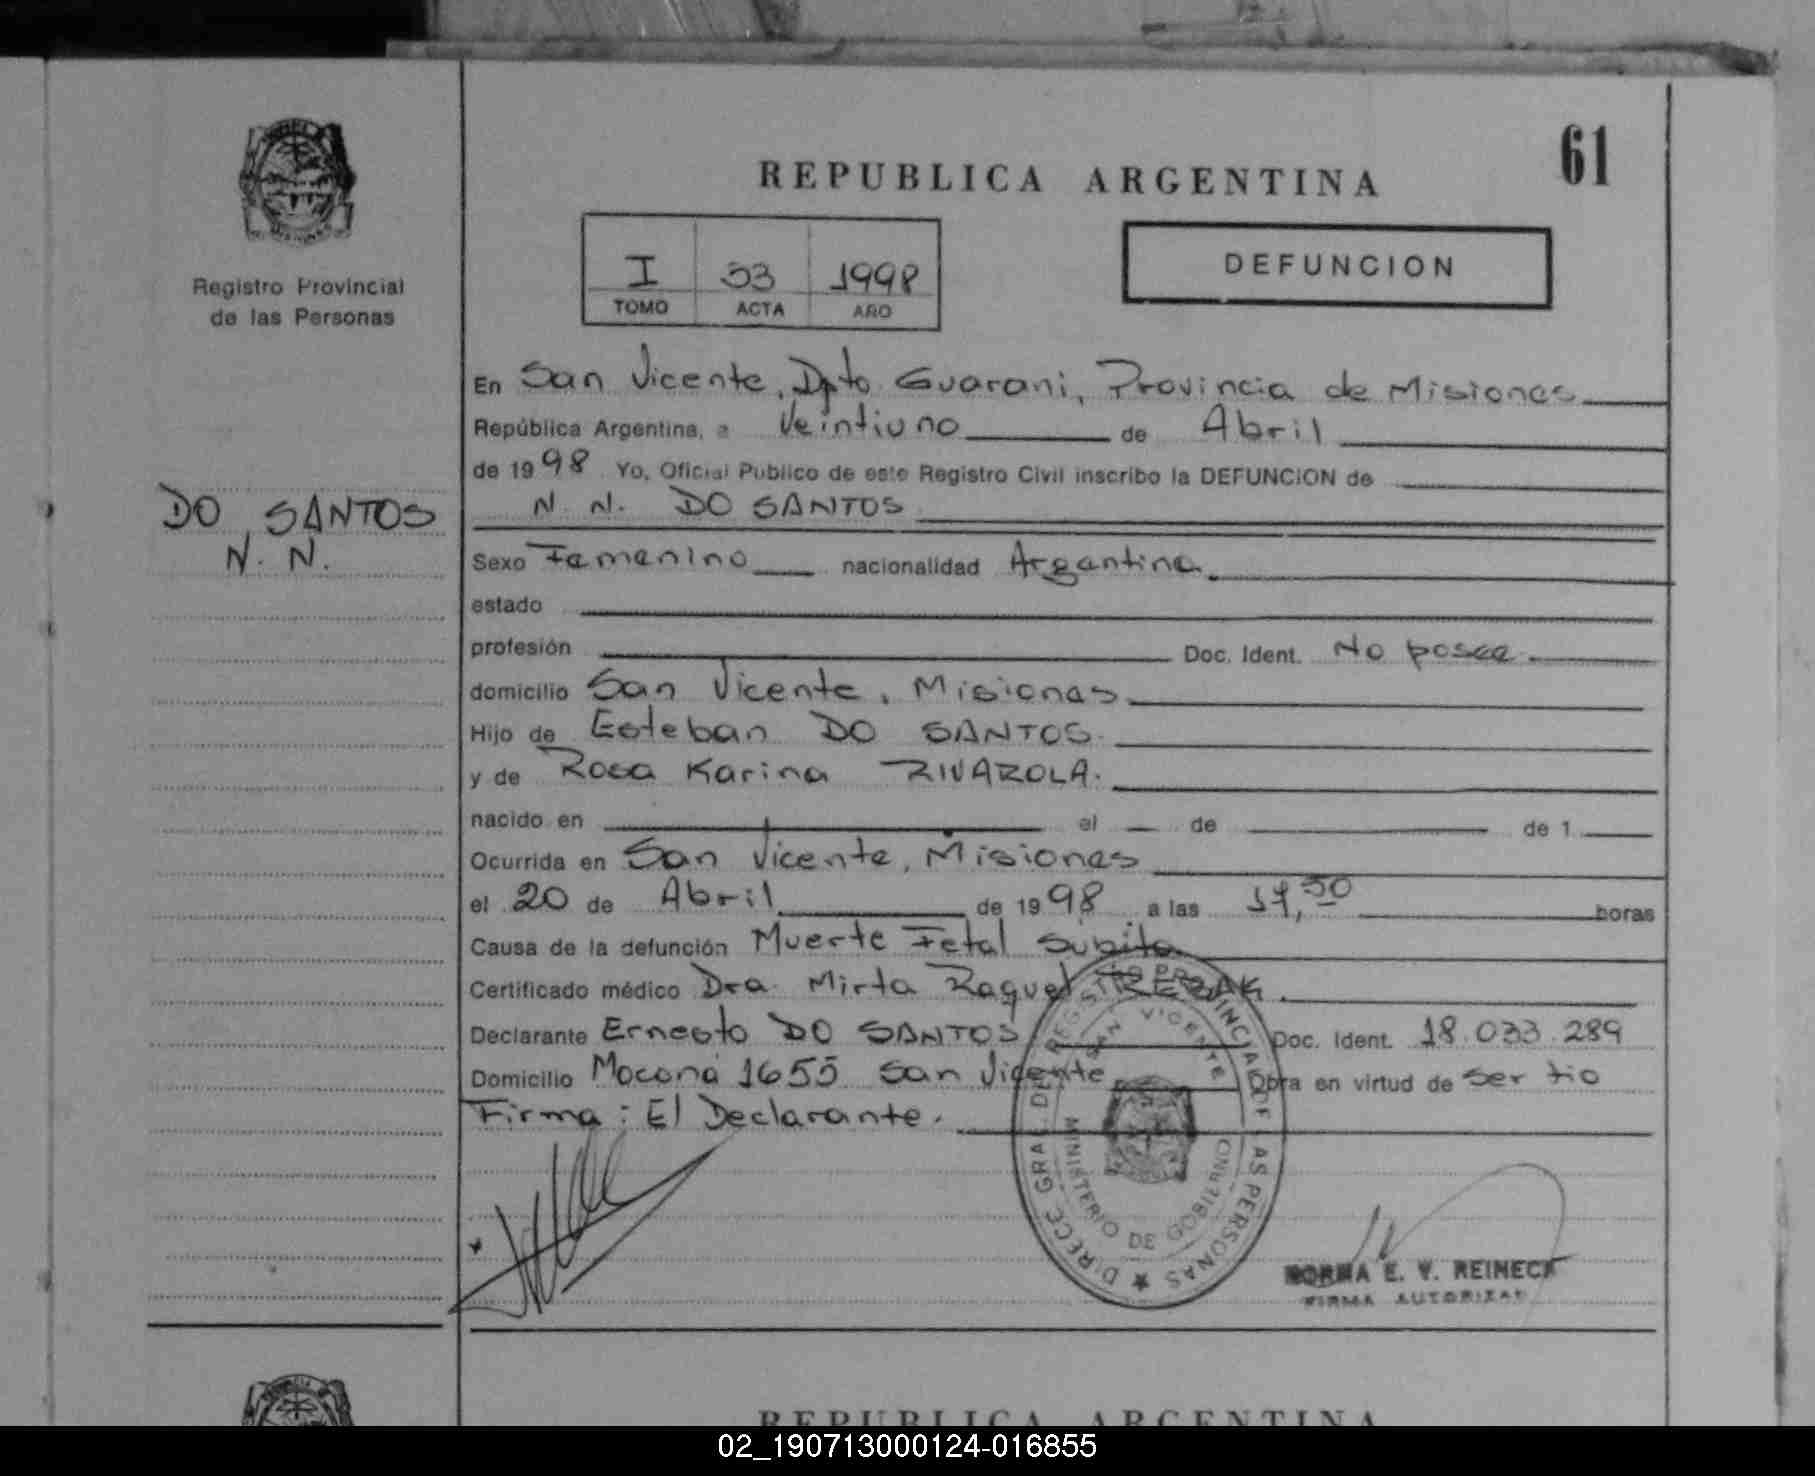 61
REPUBLICA ARGENTINA
I 53 1998
TOMO ACTA AÑO
DEFUNCION
Registro Provincial
de las Personas
DO SANTOS
N. N.
En San Vicente, Dpto Guarani, Provincia de Misiones
República Argentina, a Veintiuno de Abril
de 1998 Yo, Oficial Publico de este Registro Civil inscribo la DEFUNCION de
N. N. DO SANTOS
Sexo Femenino nacionalidad Argentina.
estado
profesión Doc. Ident. No posee
domicilio San Vicente, Misiones
Hijo de Esteban DO SANTOS.
y de Rosa Karina RIVAROLA.
nacido en el de de 1
Ocurrida en San Vicente, Misiones
el 20 de Abril de 1998 a las horas
Causa de la defunción Muerte Fetal Súbita
Certificado médico Dra. Mirta Raquel
Declarante Ernesto DO SANTOS Doc. Ident. 18.033.289
Domicilio Mocona 1655 San Vicente Obra en virtud de ser tio
Firma: El Declarante.
DIRECC. GRAL. DEL REGISTRO PROVINCIAL DE LAS PERSONAS
SAN VICENTE
MINISTERIO DE GOBIERNO
NORMA E. V. REINECK
FIRMA AUTORIZAD
REPUBLICA ARGENTINA
02_190713000124-016855